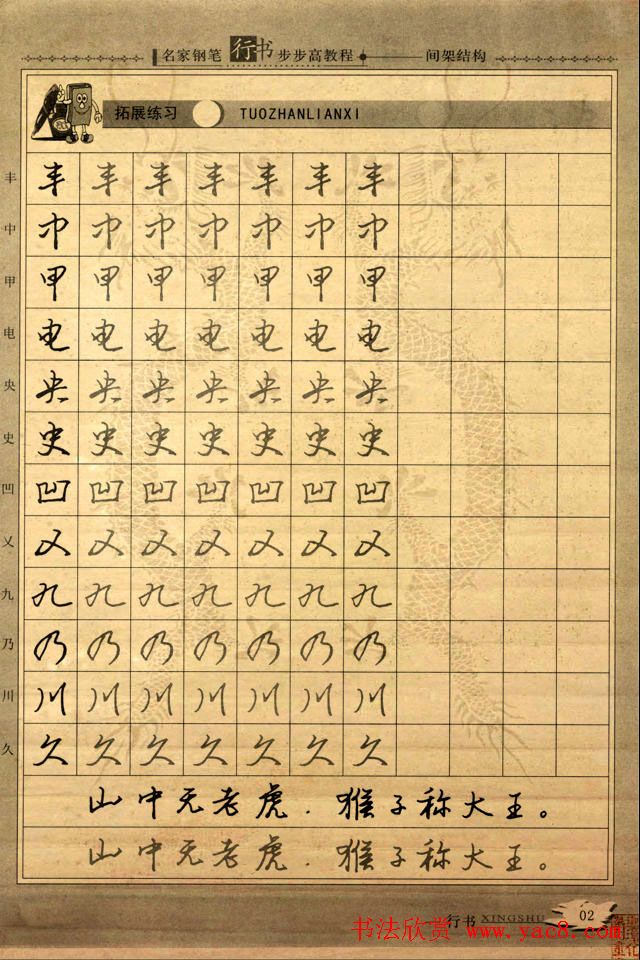 名家钢笔行书步步高教程 间架结构
拓展练习 TUOZHANLIANXI
丰 丰 丰 丰 丰 丰 丰 丰
中 中 中 中 中 中 中 中
甲 甲 甲 甲 甲 甲 甲 甲
电 电 电 电 电 电 电 电
央 央 央 央 央 央 央 央
史 史 史 史 史 史 史 史
凹 凹 凹 凹 凹 凹 凹 凹
义 义 义 义 义 义 义 义
九 九 九 九 九 九 九 九
乃 乃 乃 乃 乃 乃 乃 乃
川 川 川 川 川 川 川 川
久 久 久 久 久 久 久 久
山中无老虎.猴子称大王。
山中无老虎.猴子称大王。
行书 XINGSHU 02
书法欣赏 www.yac8.com